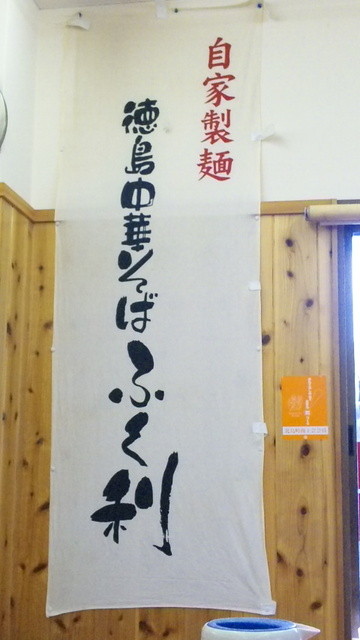 自家製麺
徳島中華そば
ふく利